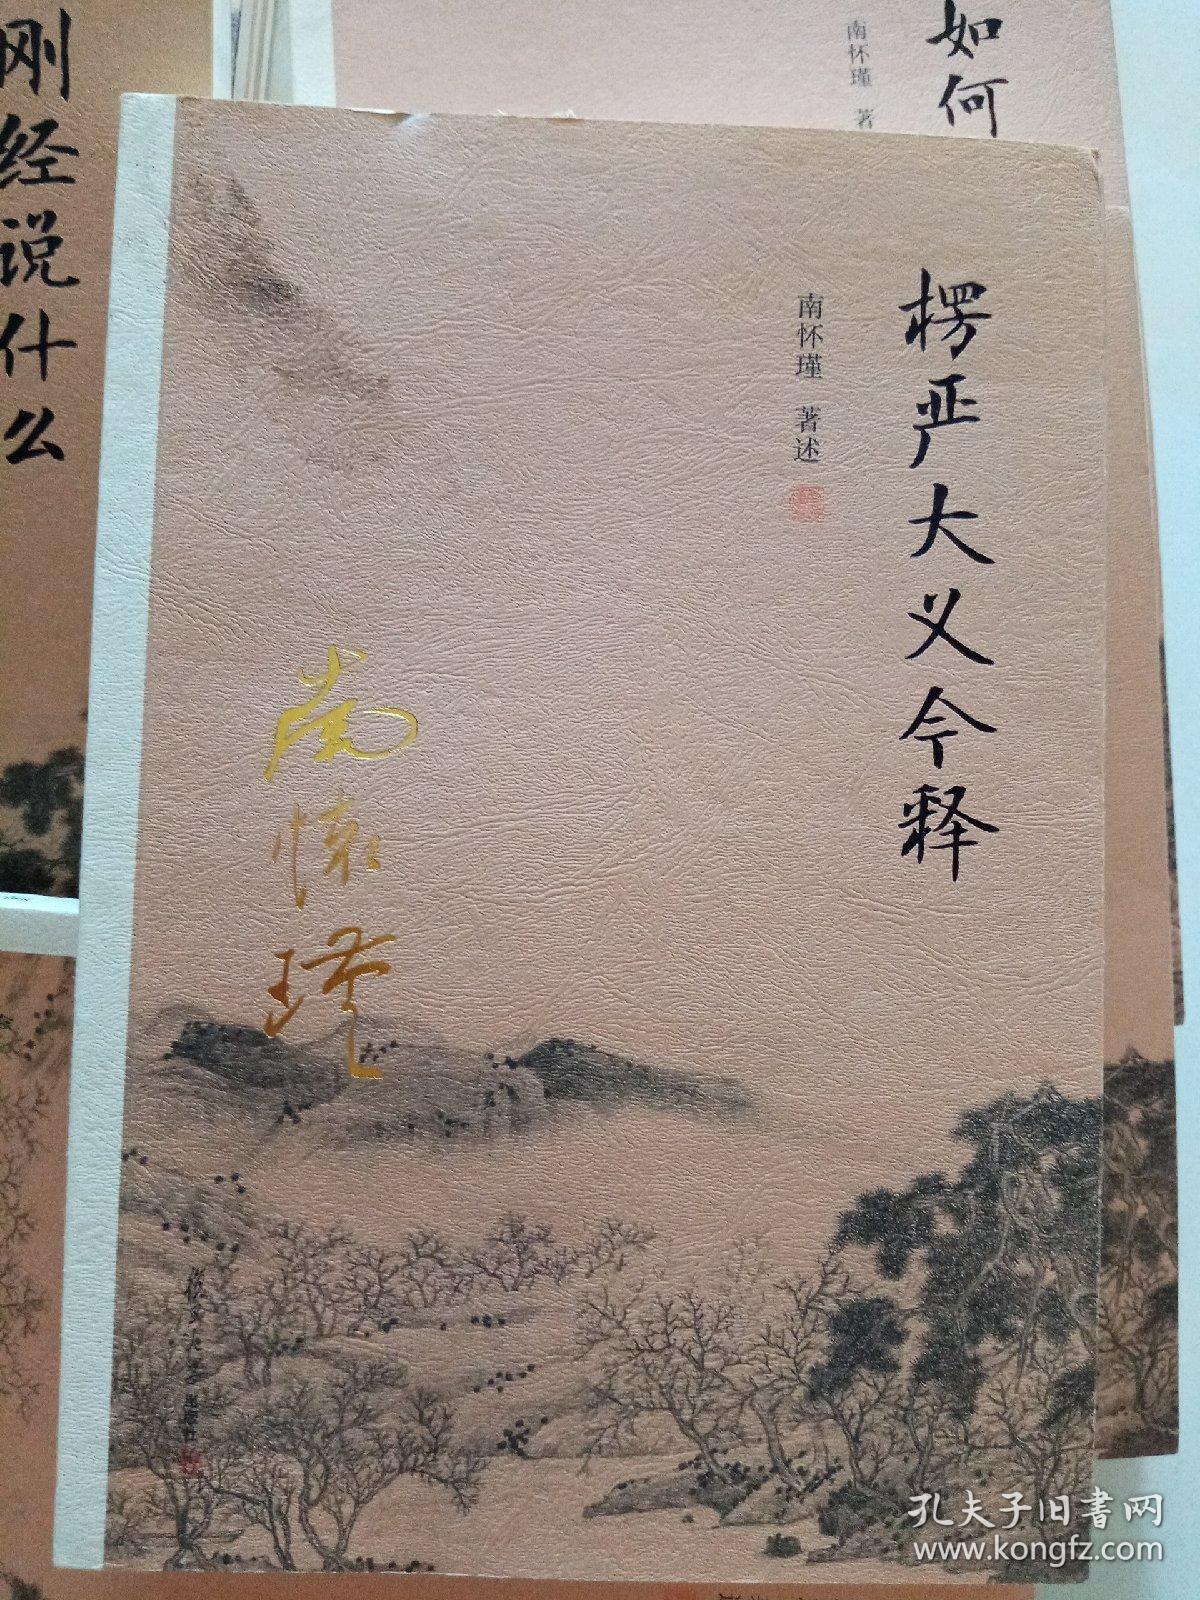 楞严大义今释
南怀瑾 著述
南懷瑾
复旦大学出版社
刚经说什么
如何
南怀瑾 著
孔夫子旧書网
www.kongfz.com